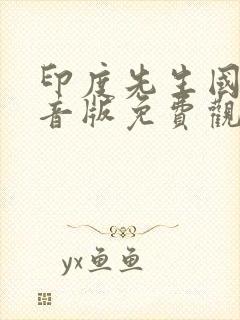 印度先生國
音版免費觀
yx鱼鱼